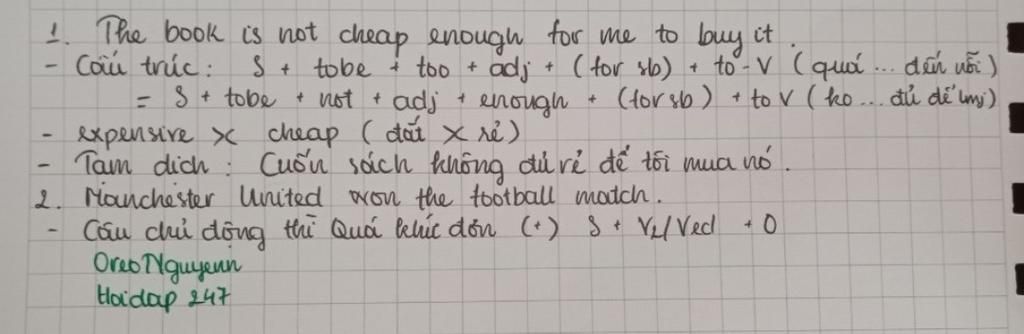 1. The book is not cheap enough for me to buy it.
- Cấu trúc: S + tobe + too + adj + (for sb) + to-V (quá ... đến nỗi)
= S + tobe + not + adj + enough + (for sb) + to V (ko ... đủ để làm)
- expensive X cheap (đắt X rẻ)
- Tạm dịch: Cuốn sách không đủ rẻ để tôi mua nó.
2. Manchester United won the football match.
- Câu chủ động thì Quá khứ đơn (+) S + V2/Ved + O
OreoNguyenn
Hoidap 247